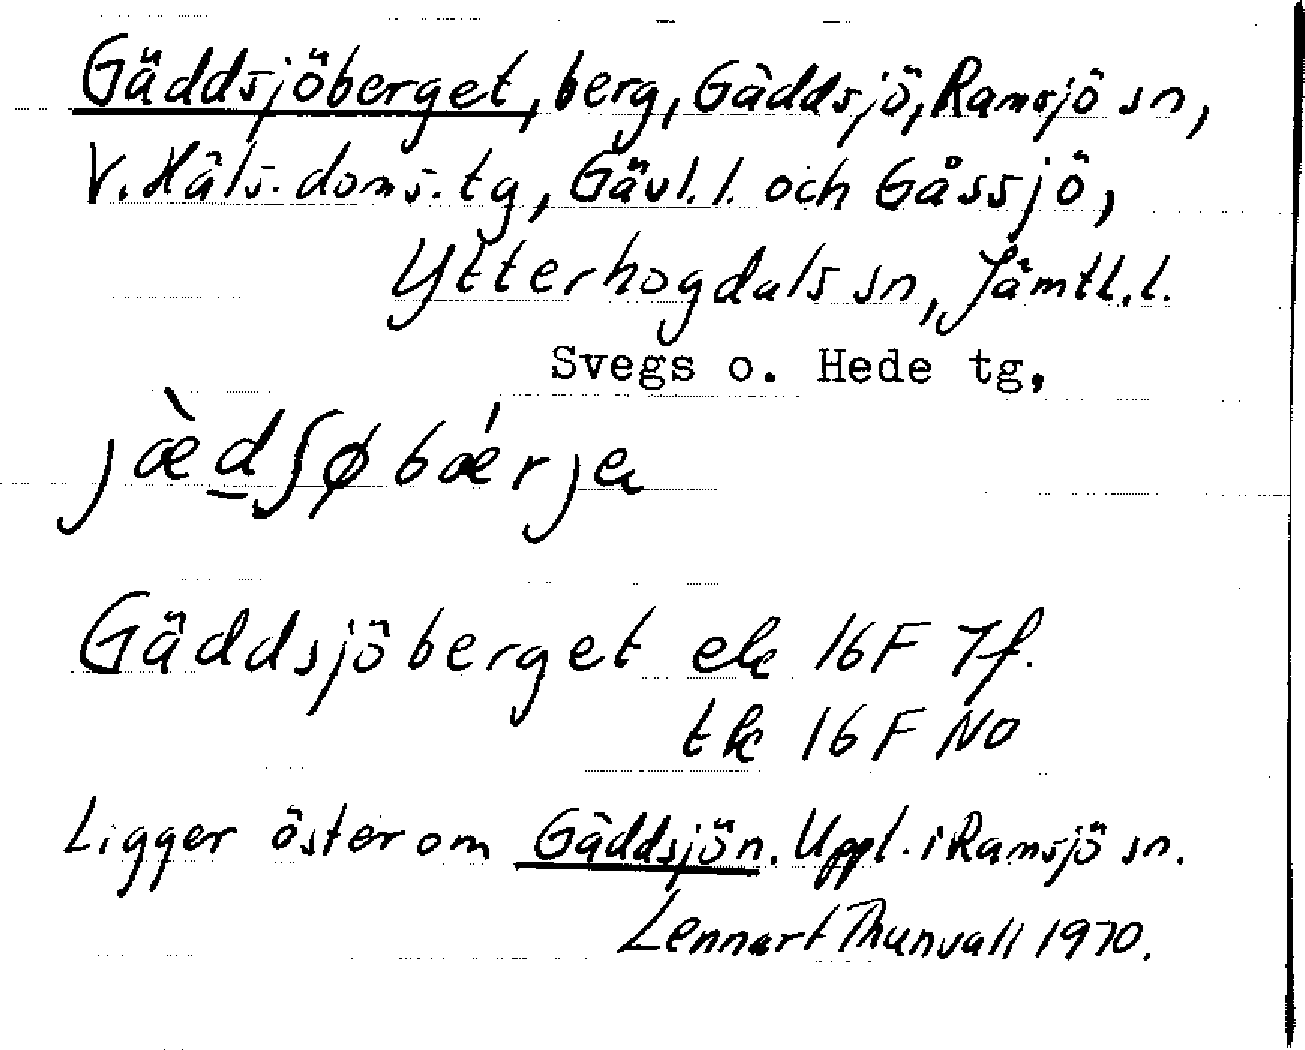 Gäddsjöberget, berg, Gäddsjö, Ramsjö sn,
V. Häls. doms. tg, Gävl. l. och Gåssjö,
Ytterhogdals sn, Jämtl. l.
Svegs o. Hede tg,
jæ̀d̲ʃøbǽrje
Gäddsjöberget ek 16F 7f.
tk 16F NO
Ligger öster om Gäddsjön. Uppl. i Ramsjö sn.
Lennart Thunvall 1970.